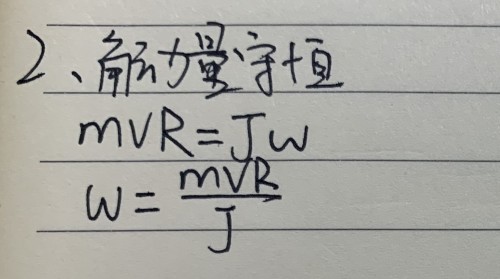 2、角动量守恒
mVR=Jω
ω=mVR/J